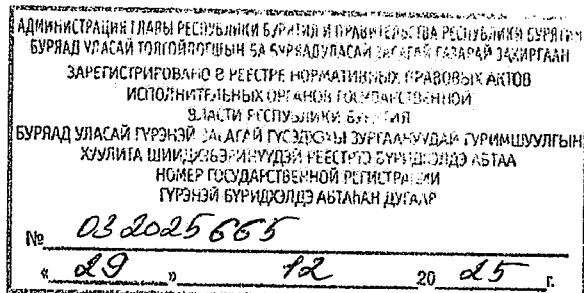 АДМИНИСТРАЦИЯ ГЛАВЫ РЕСПУБЛИКИ БУРЯТИЯ И ПРАВИТЕЛЬСТВА РЕСПУБЛИКИ БУРЯТИЯ
БУРЯАД УЛАСАЙ ТОЛГОЙЛОГШЫН БА БУРЯАД УЛАСАЙ ЗАСАГАЙ ГАЗАРАЙ ЗАХИРГААН
ЗАРЕГИСТРИРОВАНО В РЕЕСТРЕ НОРМАТИВНЫХ ПРАВОВЫХ АКТОВ
ИСПОЛНИТЕЛЬНЫХ ОРГАНОВ ГОСУДАРСТВЕННОЙ
ВЛАСТИ РЕСПУБЛИКИ БУРЯТИЯ
БУРЯАД УЛАСАЙ ГҮРЭНЭЙ ЗАСАГАЙ ГҮЙСЭДХЭХЫ ЗУРГААНУУДАЙ ГУРИМШУУЛГЫН
ХУУЛИТА ШИИДХЭБЭРИНҮҮДЭЙ РЕЕСТРТЭ БҮРИДХЭЛДЭ АБТАА
НОМЕР ГОСУДАРСТВЕННОЙ РЕГИСТРАЦИИ
ГҮРЭНЭЙ БҮРИДХЭЛДЭ АБТАҺАН ДУГААР
№ 032025665
« 29 » 12 20 25 г.